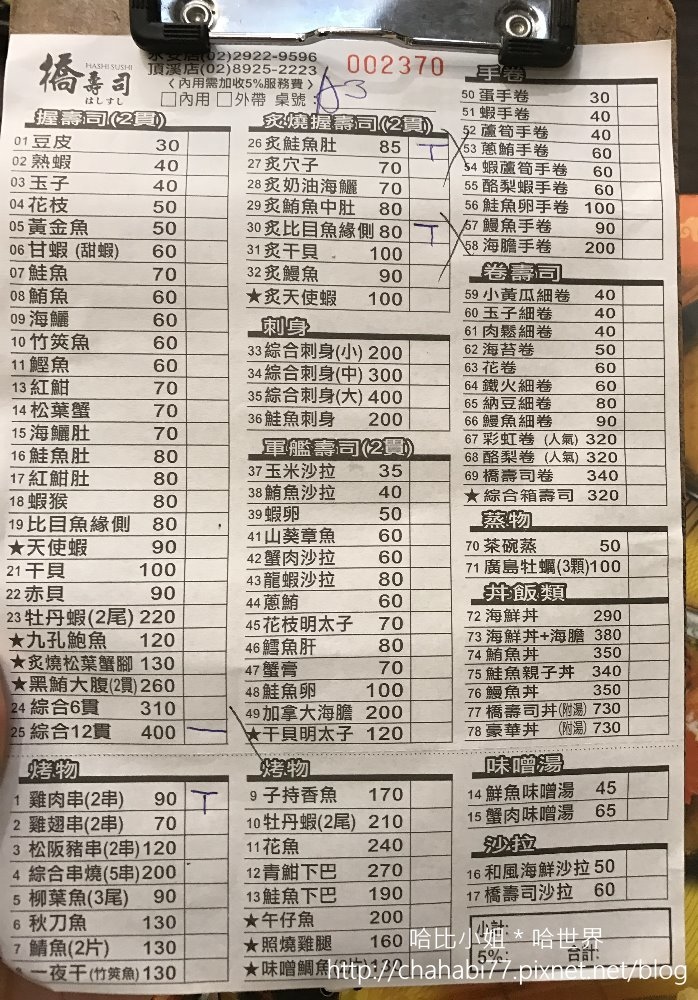 橋壽司
HASHI SUSHI
はしすし
永安店(02)2922-9596
頂溪店(02)8925-2223
〈內用需加收5%服務費〉
□內用 □外帶 桌號:
A3
002370
握壽司(2貫)
01 豆皮 30
02 熟蝦 40
03 玉子 40
04 花枝 50
05 黃金魚 50
06 甘蝦 (甜蝦) 60
07 鮭魚 60
08 鮪魚 60
09 海鱺 60
10 竹筴魚 60
11 鰹魚 60
13 紅魽 70
14 松葉蟹 70
15 海鱺肚 70
16 鮭魚肚 80
17 紅魽肚 80
18 蝦猴 80
19 比目魚緣側 80
★天使蝦 90
21 干貝 100
22 赤貝 90
23 牡丹蝦(2尾) 220
★九孔鮑魚 120
★炙燒松葉蟹腳 130
★黑鮪大腹(2貫) 260
24 綜合6貫 310
25 綜合12貫 400 一
炙燒握壽司(2貫)
26 炙鮭魚肚 85 T
27 炙穴子 70
28 炙奶油海鱺 70
29 炙鮪魚中肚 80
30 炙比目魚緣側 80 T
31 炙干貝 100
32 炙鰻魚 90
★炙天使蝦 100
刺身
33 綜合刺身(小) 200
34 綜合刺身(中) 300
35 綜合刺身(大) 400
36 鮭魚刺身 200
軍艦壽司(2貫)
37 玉米沙拉 35
38 鮪魚沙拉 40
39 蝦卵 50
41 山葵章魚 60
42 蟹肉沙拉 60
43 龍蝦沙拉 80
44 蔥鮪 60
45 花枝明太子 70
46 鱈魚肝 80
47 蟹膏 70
48 鮭魚卵 100
49 加拿大海膽 200
★干貝明太子 120
手卷
50 蛋手卷 30
51 蝦手卷 40
52 蘆筍手卷 40
53 蔥鮪手卷 60
54 蝦蘆筍手卷 60
55 酪梨蝦手卷 60
56 鮭魚卵手卷 100
57 鰻魚手卷 90
58 海膽手卷 200
卷壽司
59 小黃瓜細卷 40
60 玉子細卷 40
61 肉鬆細卷 40
62 海苔卷 50
63 花卷 60
64 鐵火細卷 60
65 納豆細卷 80
66 鰻魚細卷 90
67 彩虹卷 (人氣) 320
68 酪梨卷 (人氣) 320
69 橋壽司卷 340
★ 綜合箱壽司 320
蒸物
70 茶碗蒸 50
71 廣島牡蠣(3顆)100
丼飯類
72 海鮮丼 290
73 海鮮丼+海膽 380
74 鮪魚丼 350
75 鮭魚親子丼 340
76 鰻魚丼 350
77 橋壽司丼(附湯) 730
78 豪華丼 (附湯) 730
烤物
1 雞肉串(2串) 90 T
2 雞翅串(2串) 70
3 松阪豬串(2串) 120
4 綜合串燒(5串) 200
5 柳葉魚(3尾) 90
6 秋刀魚 130
7 鯖魚(2片) 130
一夜干(竹筴魚) 130
烤物
9 子持香魚 170
10 牡丹蝦(2尾) 210
11 花魚 240
12 青魽下巴 270
13 鮭魚下巴 190
★午仔魚 200
★照燒雞腿 160
★味噌鯛魚
味噌湯
14 鮮魚味噌湯 45
15 蟹肉味噌湯 65
沙拉
16 和風海鮮沙拉 50
17 橋壽司沙拉 60
小計:
5%: 合計:
哈比小姐 * 哈世界
http://chahabi77.pixnet.net/blog